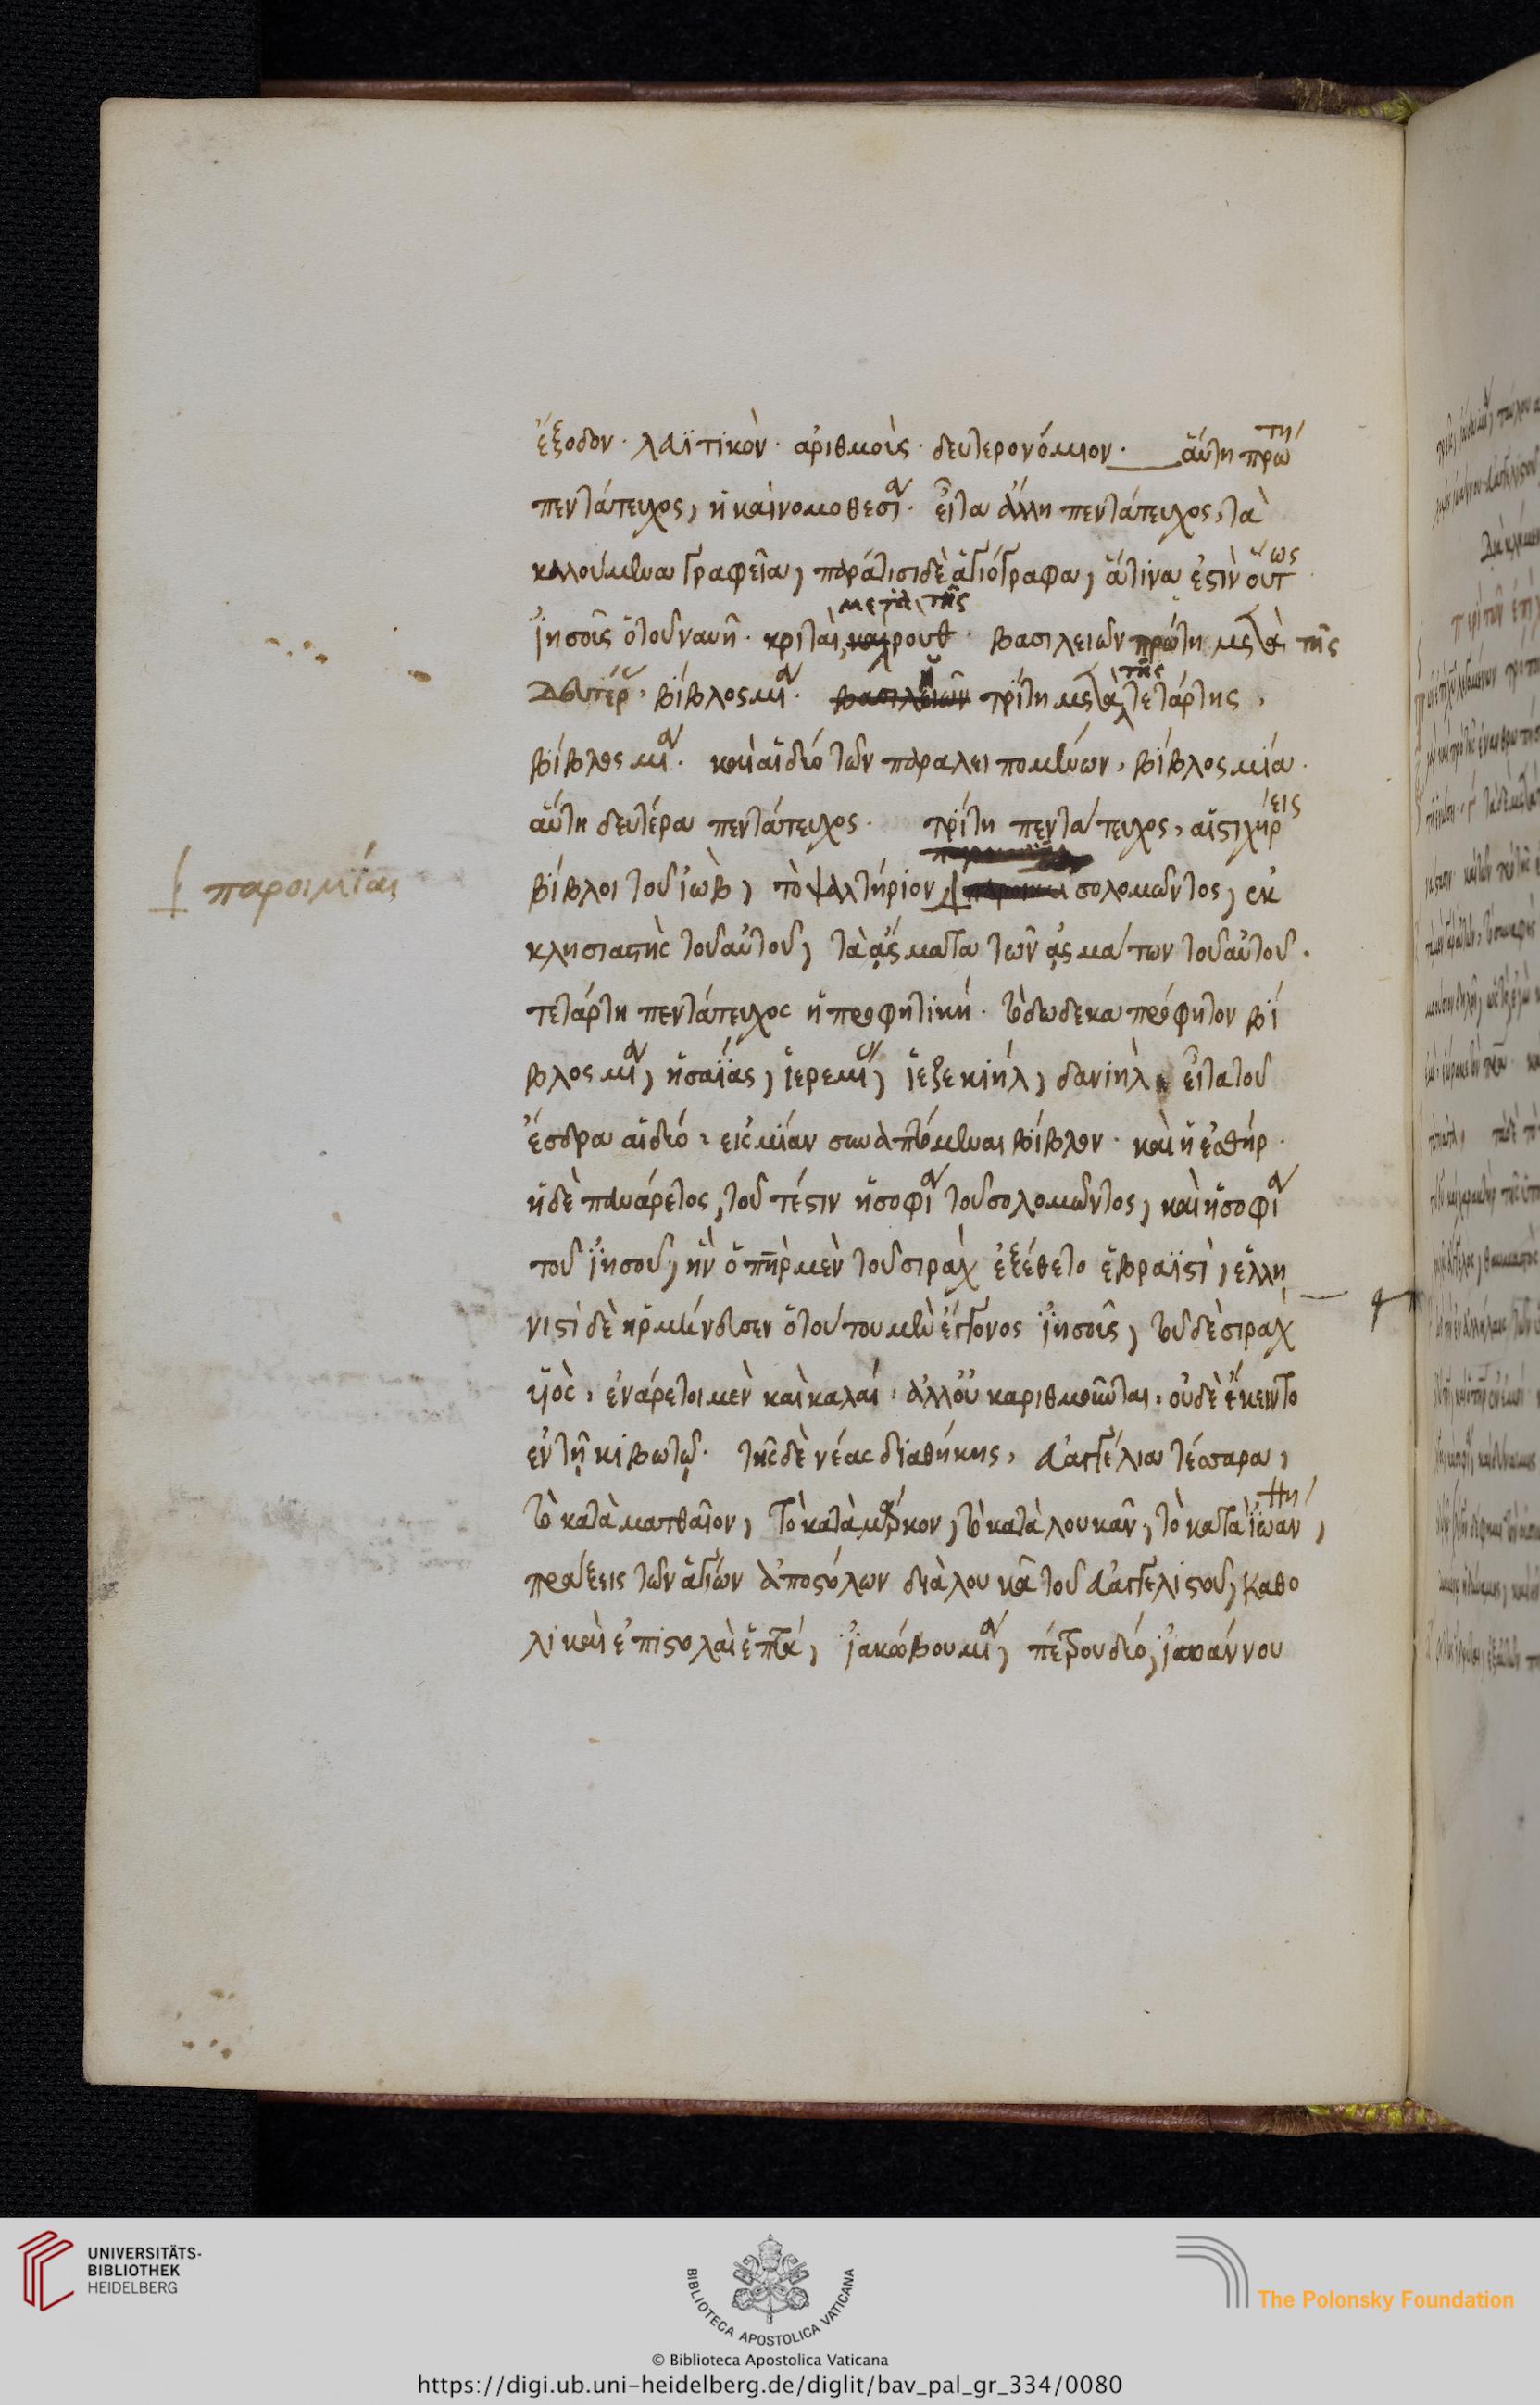 ἔξοδον · λαϊτικὸν · ἀριθμοὺς · δευτερονόμιον · αὕτη πρώτη
πεντάτευχος, ἡ καὶ νομοθεσία · εἶτα ἄλλη πεντάτευχος, τὰ
καλούμενα γραφεῖα, παράτισι δὲ ἁγιόγραφα, ἅτινα ἐστὶν οὕτως
ἰησοῦς ὁ τοῦ ναυῆ · κριταὶ, μετὰ τῆς ῥουθ · βασιλειῶν πρώτη μετὰ τῆς
δευτέρας · βίβλος μία · ἡ τρίτη μετὰ τῆς τετάρτης,
βίβλος μία · καὶ αἱ δύο τῶν παραλειπομένων, βίβλος μία ·
αὕτη δευτέρα πεντάτευχος · τρίτη πεντάτευχος, αἱ στιχήρεις
παροιμίαι
βίβλοι τοῦ ἰὼβ, τὸ ψαλτήριον, σολομῶντος, ἐκ
κλησιαστὴς τοῦ αὐτοῦ, τὰ ᾄσματα τῶν ᾀσμάτων τοῦ αὐτοῦ ·
τετάρτη πεντάτευχος ἡ προφητική · τὸ δωδεκαπρόφητον βί
βλος μία, ἡσαΐας, ἱερεμίας, ἰεζεκιὴλ, δανιὴλ · εἶτα τοῦ
ἔσδρα αἱ δύο · εἰς μίαν συναπτόμεναι βίβλον · καὶ ἡ ἐσθήρ ·
ἡ δὲ πανάρετος, τουτέστιν ἡ σοφία τοῦ σολομῶντος, καὶ ἡ σοφία
τοῦ ἰησοῦ, ἣν ὁ πατὴρ μὲν τοῦ σιρὰχ ἐξέθετο ἑβραϊστὶ, ἑλλη
νιστὶ δὲ ἡρμήνευσεν ὁ τούτου μὲν ἔγγονος ἰησοῦς, τοῦ δὲ σιρὰχ
υἱὸς · ἐνάρετοι μὲν καὶ καλαί · ἀλλ' οὐκ ἀριθμοῦνται · οὐδὲ ἔκειντο
ἐν τῇ κιβωτῷ · τῆς δὲ νέας διαθήκης, εὐαγγέλια τέσσαρα,
τὸ κατὰ ματθαῖον, τὸ κατὰ μάρκον, τὸ κατὰ λουκᾶν, τὸ κατὰ ἰωάννην,
πράξεις τῶν ἁγίων ἀποστόλων διὰ λουκᾶ τοῦ εὐαγγελιστοῦ, καθο
λικαὶ ἐπιστολαὶ ἑπτά, ἰακώβου μία, πέτρου δύο, ἰωάννου
UNIVERSITÄTS-
BIBLIOTHEK
HEIDELBERG
BIBLIOTECA APOSTOLICA VATICANA
The Polonsky Foundation
© Biblioteca Apostolica Vaticana
https://digi.ub.uni-heidelberg.de/diglit/bav_pal_gr_334/0080